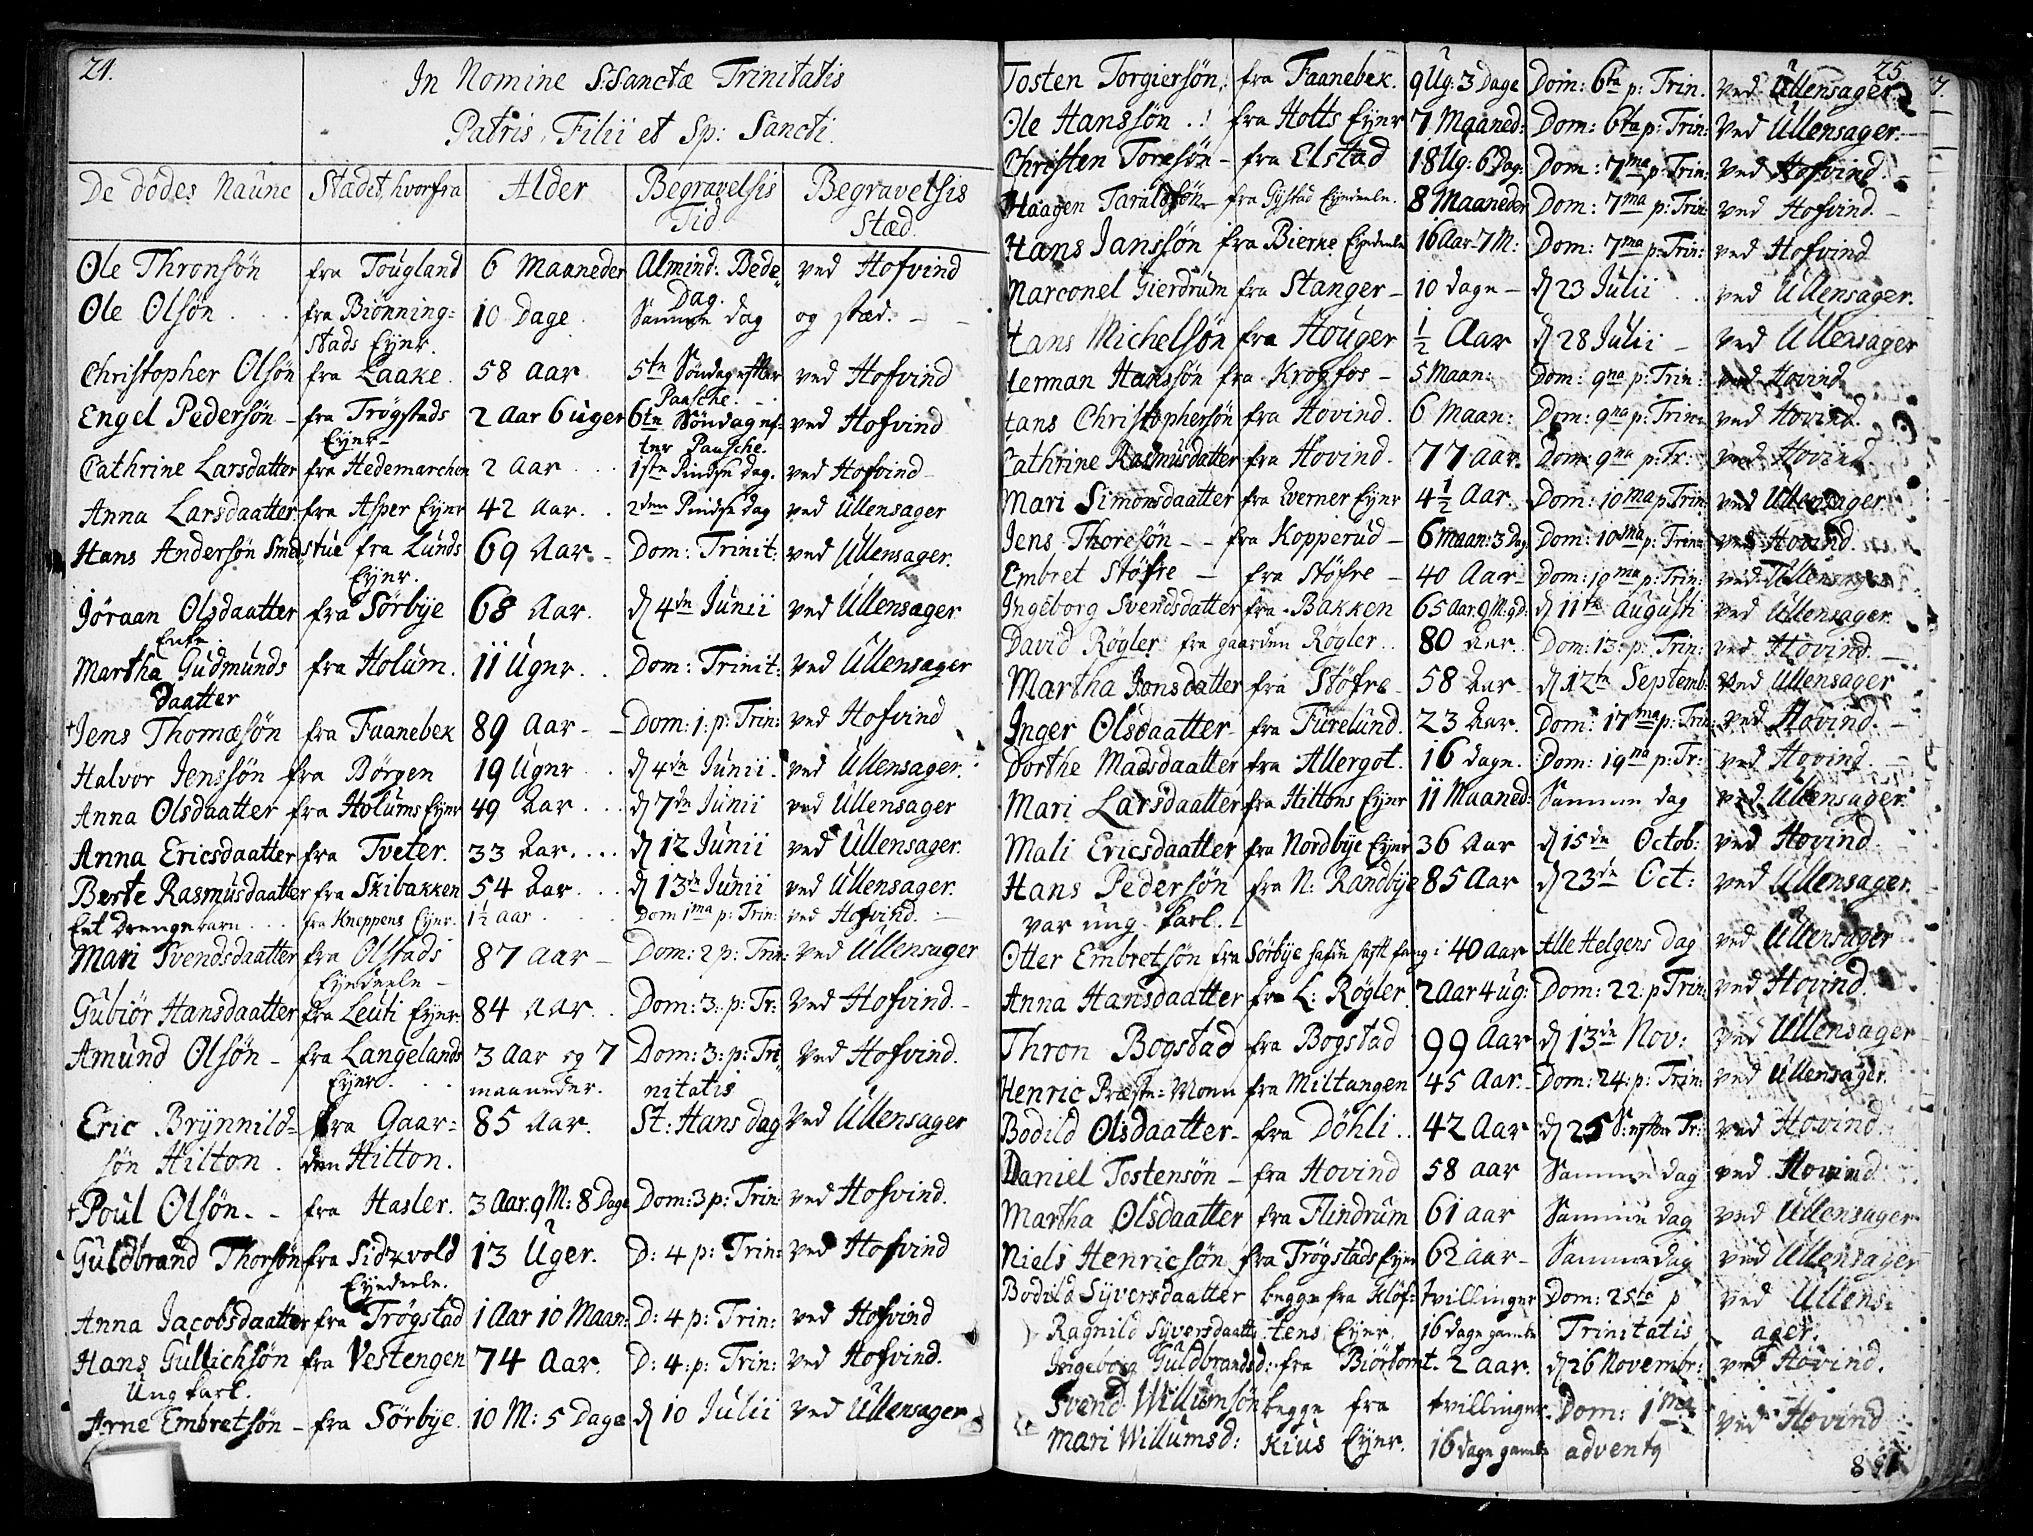 24.
In Nomine S:Sanctæ Trinitatis
Patris, Filii et Sp: Sancti.
De dödes Naune Stadet, hvorfra Alder Begravelsis Tid. Begravelsis Stæd.
Ole Thronsön fra Tougland 6 Maaneder Almind: Bede Dag. ved Hofvind
Ole Olsön fra Biönning= 10 Dage. Samme dag og stæd.
stads Eyer.
Christopher Olsön fra Laake 58 Aar 5te Söndag efter Paasche. ved Hofvind
Engel Pedersön fra Trögstads Eyer 2 Aar 6 uger 6te Söndag ef=ter Paasche. ved Hofvind
Cathrine Larsdatter fra Hedemarchen 2 Aar 1ste Pindse dag. ved Hofvind
Anna Larsdaatter fra Asper Eyer 42 Aar. 2den Pindse dag ved Ullensager
Hans Andersön Smedstue fra Lunds Eyer. 69 Aar Dom: Trinit: ved Ullensager.
Jöraan Olsdaatter Enke. fra Sörbye 68 Aar. d 4de Junii ved Ullensager
Martha Gudmunds fra Holum. 11 Uger. Dom: Trinit: ved Ullensager
daatter
+Jens Thomæsön fra Faanebek 89 Aar Dom: 1. p: Trin: ved Hofvind
Halvor Jenssön fra Börgen 19 Uger d 4de Junii. ved Ullensager.
Anna Olsdaatter fra Holums Eyer 49 Aar d 7de Junii ved Ullensager
Anna Ericsdaatter fra Tveter. 33 Aar. d 12 Junii ved Ullensager.
Berte Rasmusdaatter fra Skibakken 54 Aar d 13de Junii ved Ullensager.
Et Drengebarn fra Kneppens Eyer. 1½ aar Dom 1ma p: Trin: ved Hofvind.
Mari Svendsdaatter fra Olstads Eyedeele 87 Aar Dom: 2 p: Trin: ved Ullensager
Gubiör Hansdaatter fra Leuti Eyer. 84 Aar. Dom: 3: p: Tr: ved Hofvind.
Amund Olsön fra Langelands Eyer 3 Aar og 7 maaneder. Dom: 3: p: Trinitatis ved Hofvind.
Eric Brynnild= fra Gaar= 85 Aar. St: Hans dag ved Ullensager
sön Hilton. den Hilton.
+Poul Olsön fra Hasler. 3 Aar. 9 M: 8 Dage Dom: 3 p: Trin: ved Hofvind.
Guldbrand Thorsön fra Sidzvold Eyedeele. 13 Uger. D: 4 p: Trin: ved Hofvind
Anna Jacobsdaatter fra Trögstad 1 Aar 10 Maan: D: 4 p: Trin: ved Hofvind
Hans Gullichsön fra Vestengen 74 Aar. D: 4: p: Trin: ved Hofvind.
Ung karl.
Arne Embretsön fra Sörbye. 10 M: 5 Dage d 10 Julii ved Ullensager
25
Tosten Torgiersön fra Faanebek. 9 Ug: 3 Dage Dom: 6ta p: Trin. ved Ullensager.
Ole Hanssön fra Holts Eyer 7 Maaned: Dom: 6ta p: Trin: ved Ullensager.
Christen Toresön fra Elstad 18 Ug: 6 Dag: Dom: 7ma p: Trin: ved Hofvind.
Haagen Taraldsön fra Gystad Eyedeele. 8 Maaneder Dom: 7ma p: Trin: ved Hofvind.
Hans Janssön fra Bierke Eyedeele 16 Aar 7 M: Dom: 7ma p: Trin: ved Hofvind
Marconel Gierdrum fra Stanger 10 dage d 23 Julii ved Ullensager.
Hans Michelsön fra Houger ½ Aar d 28 Julii ved Ullensager
Herman Hanssön fra Krogfos 5 Maan: Dom: 9na p: Trin: ved Hovind
Hans Christophersön fra Hovind. 6 Maan: Dom: 9na p: Trin: ved Hovind.
Cathrine Rasmusdatter fra Hovind. 77 aar. Dom: 9na p: Tr: ved Hovind
Mari Simonsdaatter fra Werner Eyer 4½ Aar. Dom: 10ma p Trin: ved Ullensager.
Jens Thoresön fra Kopperud 6 maan: 3 Dag Dom: 10ma p: Trin: ved Hovind.
Embret Stöfre fra Stöfre 40 Aar Dom: 10ma p: Trin: ved Ullensager
Ingeborg Svendsdatter fra Bakken 65 Aar. 9 M. 9 d: d 11te Augusti ved Ullensager.
David Rögler fra gaarden Rögler 80 Aar. Dom: 13: p: Trin: ved Hovind.
Martha Jonsdatter fra Stöfre 58 Aar d 12te Septemb: ved Ullensager
Inger Olsdaatter fra Furelund. 23 Aar. Dom: 17ma p: Trin: ved Hovind.
Dorthe Madsdaatter fra Allergot. 16 dage. Dom: 19na p: Tr: ved Hovind.
Mari Larsdaatter fra Hiltons Eyer 11 Maaned: Samme dag ved Ullensager.
Mali Ericsdaatter fra Nordbye Eyer 36 Aar d 15de Octob: ved Hovind
Hans Pedersön fra N: Randbye 85 Aar d 23de Oct: ved Ullensager.
var ung karl.
Otter Embretsön fra Sörbye 40 Aar Alle Helgens Dag ved Ullensager
Anna Hansdaatter fra L: Rögler 2 Aar 4 ug: Dom: 22: p Trin: ved Hovind.
Thron Bogstad fra Bogstad 99 Aar d 13de Nov: ved Ullensager
Henric Præste=Monn fra Miltangen 45 Aar. Dom: 24: p: Trin: ved Ullensager.
Bodild Olsdaatter fra Döhli 42 Aar d 25 S: efter Tr: ved Hovind.
Daniel Tostensön fra Hovind 58 aar Samme dag ved Hovind.
Martha Olsdaatter fra Flindrum 61 aar Samme dag ved Ullensager
Niels Henricsön fra Trögstads Eyer 62 aar Samme dag ved Ullensager
Bodild Syversdaatter begge fra Klöf= tvillinger Dom: 25te p ved Ullens=
Ragnild Syversdaatt: tens Eyer. 16 dage gamle Trinitatis ager.
Ingeborg Guldbrandsd: fra Biörtomt. 2 aar. d 26 Novembr: ved Hovind.
Svend Willumsön begge fra tvillinger. Dom: 1ma ved Hovind
Mari Willumsd: Kius Eyer. 16 dage gamle advent9